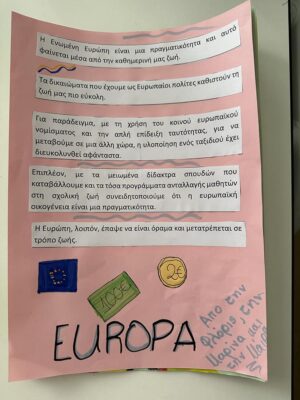 Η Ενωμένη Ευρώπη είναι μια πραγματικότητα και αυτό
φαίνεται μέσα από την καθημερινή μας ζωή.
Τα δικαιώματα που έχουμε ως Ευρωπαίοι πολίτες καθιστούν τη
ζωή μας πιο εύκολη.
Για παράδειγμα, με τη χρήση του κοινού ευρωπαϊκού
νομίσματος και την απλή επίδειξη ταυτότητας, για να
μεταβούμε σε μια άλλη χώρα, η υλοποίηση ενός ταξιδιού έχει
διευκολυνθεί αφάνταστα.
Επιπλέον, με τα μειωμένα δίδακτρα σπουδών που
καταβάλλουμε και τα τόσα προγράμματα ανταλλαγής μαθητών
στη σχολική ζωή συνειδητοποιούμε ότι η ευρωπαϊκή
οικογένεια είναι μια πραγματικότητα.
Η Ευρώπη, λοιπόν, έπαψε να είναι όραμα και μετατρέπεται σε
τρόπο ζωής.
100€
2€
EUROPA
Από την
Φλωρις, την
Μαρίνα
την